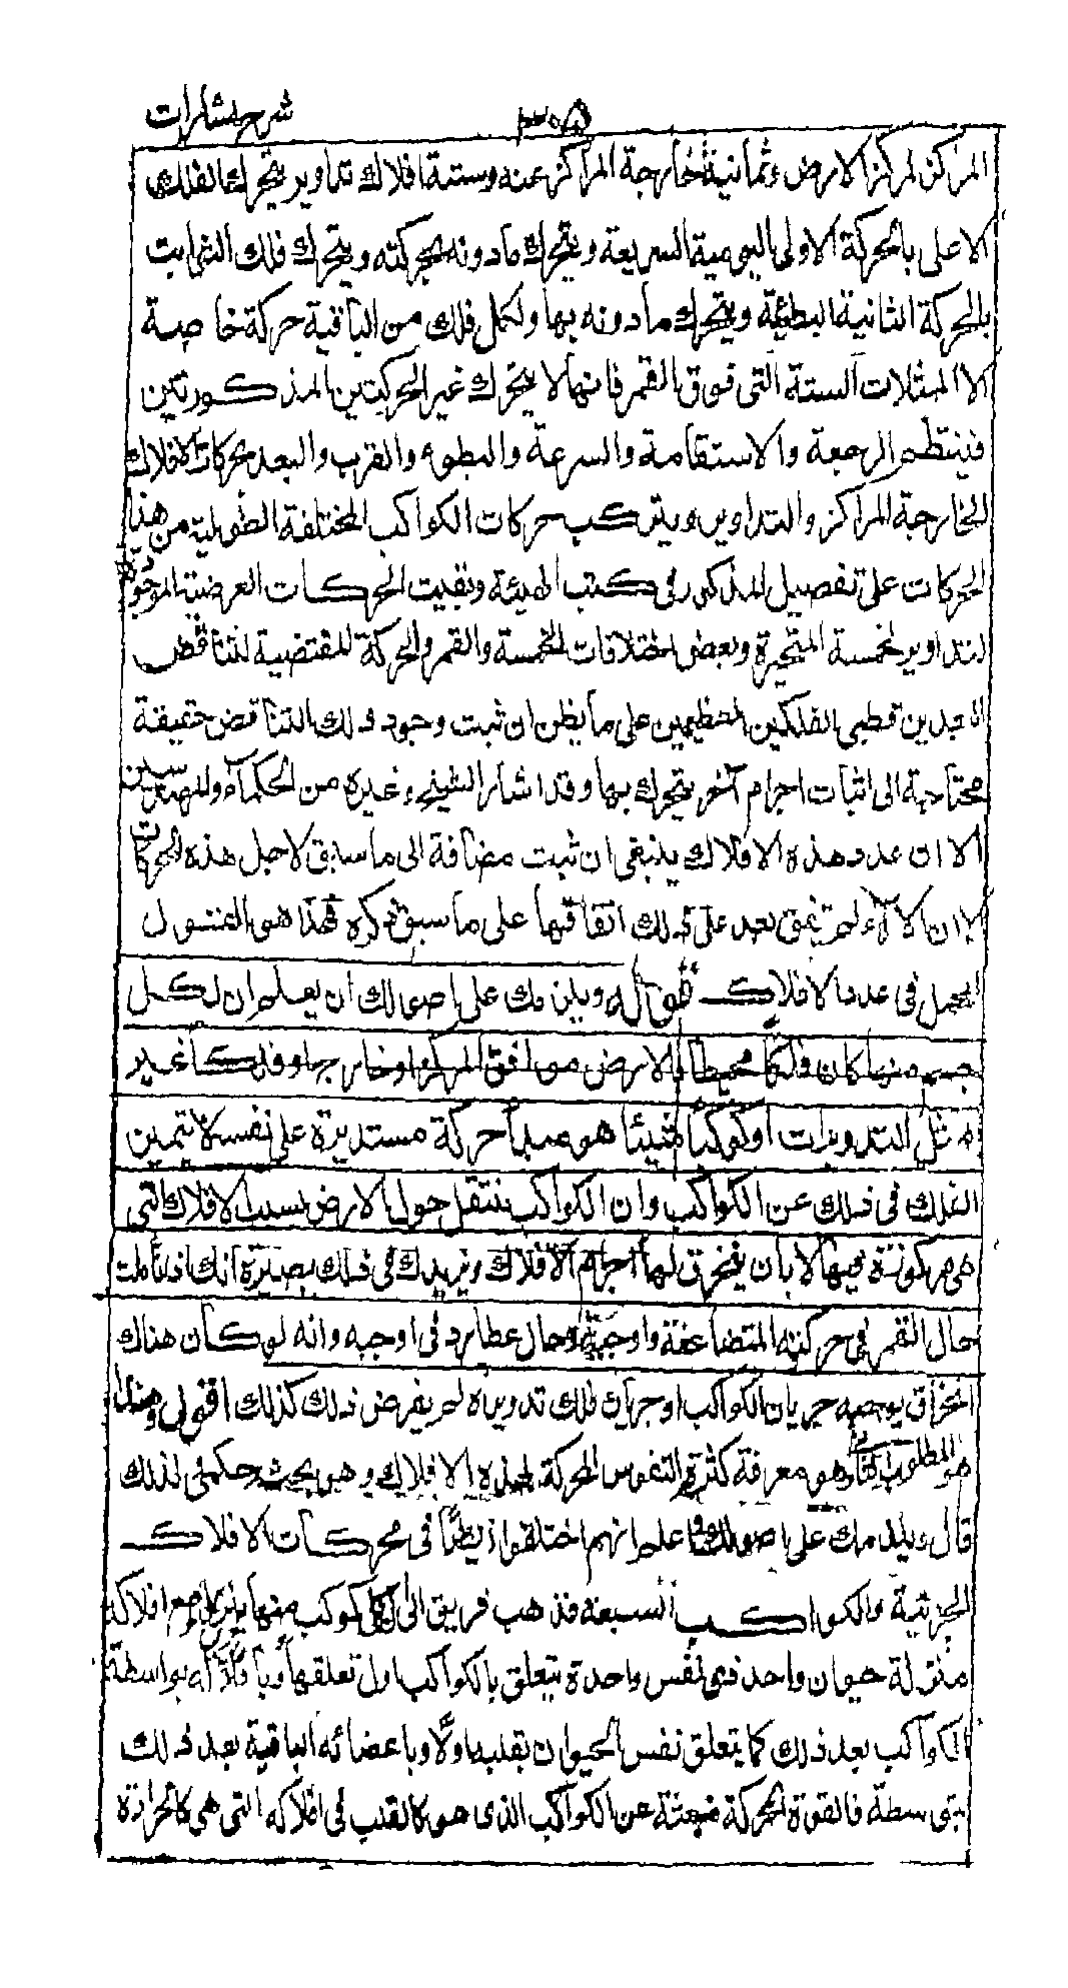 شرح اشارات ٣٠٥
المراكز لمركز الارض وثمانية خارجة المراكز عنه وستة افلاك تداوير يتحرك الفلك
الاعلى بالحركة الاولى اليومية السريعة ويتحرك مادونه بحركته ويتحرك فلك الثوابت
بالحركة الثانية البطيئة ويتحرك مادونه بها ولكل فلك من الباقية حركة خاصة
الا الممثلات الستة التى فوق القمر فانها لا يتحرك غير الحركتين المذكورتين
فينتظم الرجعة والاستقامة والسرعة والبطوء والقرب والبعد بحركات الافلاك
الخارجة المراكز والتداوير ويتركب حركات الكواكب المختلفة الطولية من هذه
الحركات على تفصيل المذكور فى كتب الهيئة وبقيت الحركات العرضية الموجودة
لتداوير الخمسة المتحيرة وبعض اختلافات الخمسة والقمر والحركة المقتضية لتناقض
البعد بين قطبى الفلكين العظيمين على ما يظن ان ثبت وجود ذلك التناقض حقيقة
محتاجة الى اثبات اجرام آخر يتحرك بها وقد اشار الشيخ وغيره من الحكماء والمهندسين
الا ان عدد هذه الافلاك ينبغى ان ثبت مضافة الى ما سبق لاجل هذه الحركات
الا ان الآراء لم تتفق بعد على ذلك اتفاقها على ما سبق ذكره فهذا هو القول
المجمل فى عدد الافلاك قوله ويلزمك على اصولك ان يعلم ان لكل
جسم منها كان فلكا محيطا بالارض موافق المركز او خارجا وفلكا غير
محيط مثل التدويرات اوكوكبا شيئا هو مبدأ حركة مستديرة على نفسه لا يتميز
الفلك فى ذلك عن الكواكب وان الكواكب ينتقل حول الارض بسبب الافلاك التى
هى مركوزة فيها لا بان ينخرق لها اجرام الافلاك ويزيدك فى ذلك بصيرة انك اذا تأملت
حال القمر فى حركته المتضاعفة واوجيه وحال عطارد فى اوجيه وانه لو كان هناك
انخراق يوجبه جريان الكواكب او جريان فلك تدويره لم يعرض ذلك كذلك اقول وهذا
هو المطلوب وهو معرفة كثرة النفوس المحركة لهذه الافلاك وهو بحث حكمى لذلك
قال ويلزمك على اصولك واعلم انهم اختلفوا ايضا فى محركات الافلاك
الجزئية والكواكب السبعة فذهب فريق الى ان كل كوكب منها ينزل مع افلاكه
منزلة حيوان واحد ذى نفس واحدة يتعلق بالكواكب اول تعلقها وبافلاكه بواسطة
الكواكب بعد ذلك كما يتعلق نفس الحيوان بقلبه اولا وباعضائه الباقية بعد ذلك
بتوسطه فالقوة المحركة منبعثة عن الكواكب الذى هو كالقلب فى افلاكه التى هى كالجوارح